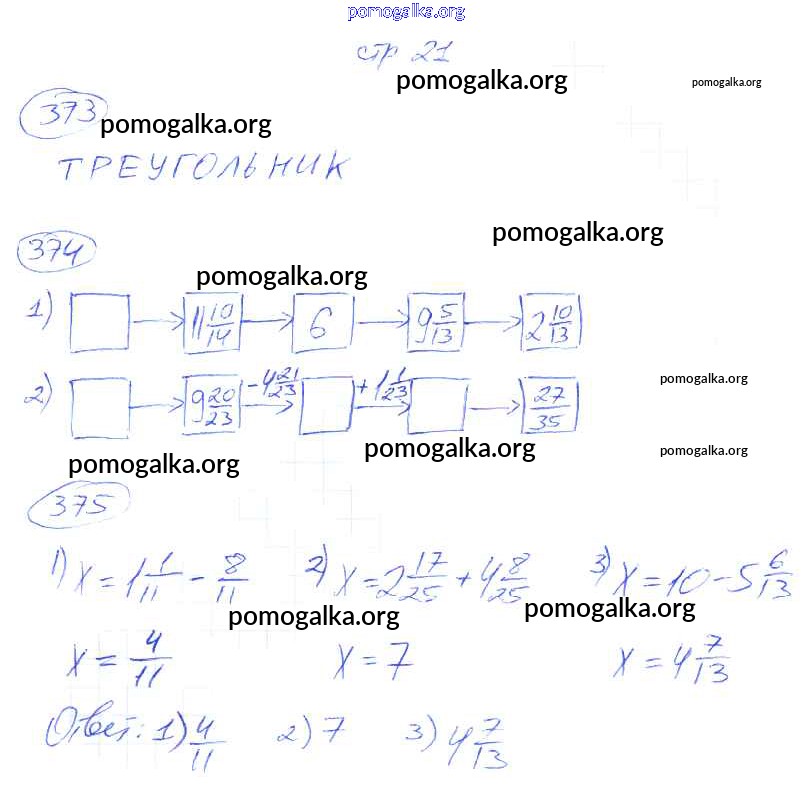 pomogalka.org
стр 21
pomogalka.org
pomogalka.org
373 pomogalka.org
ТРЕУГОЛЬНИК
pomogalka.org
374
pomogalka.org
1) → 11 10/14 → 6 → 9 5/13 → 2 10/13
pomogalka.org
2) → 9 20/23 - 4 21/23 → + 1 1/23 → → 27/35
pomogalka.org
pomogalka.org
pomogalka.org
375
1) x = 1 1/11 - 8/11 2) x = 2 17/25 + 4 8/25 3) x = 10 - 5 6/13
pomogalka.org
pomogalka.org
x = 4/11 x = 7 x = 4 7/13
Ответ: 1) 4/11 2) 7 3) 4 7/13